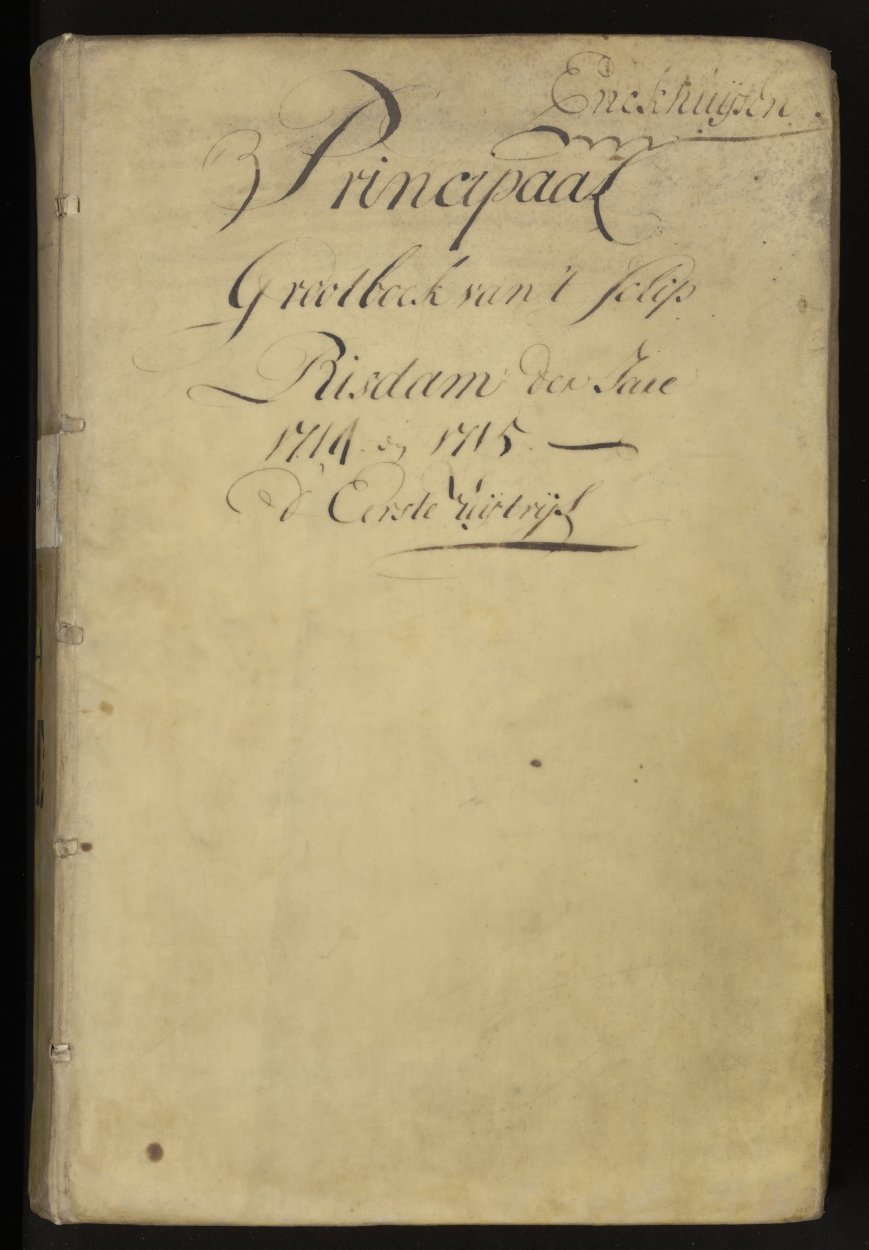 Enckhuÿsen.
Principaal
Grootboek van 't Schip
Risdam der Jare
1714 en 1715
d' Eerste